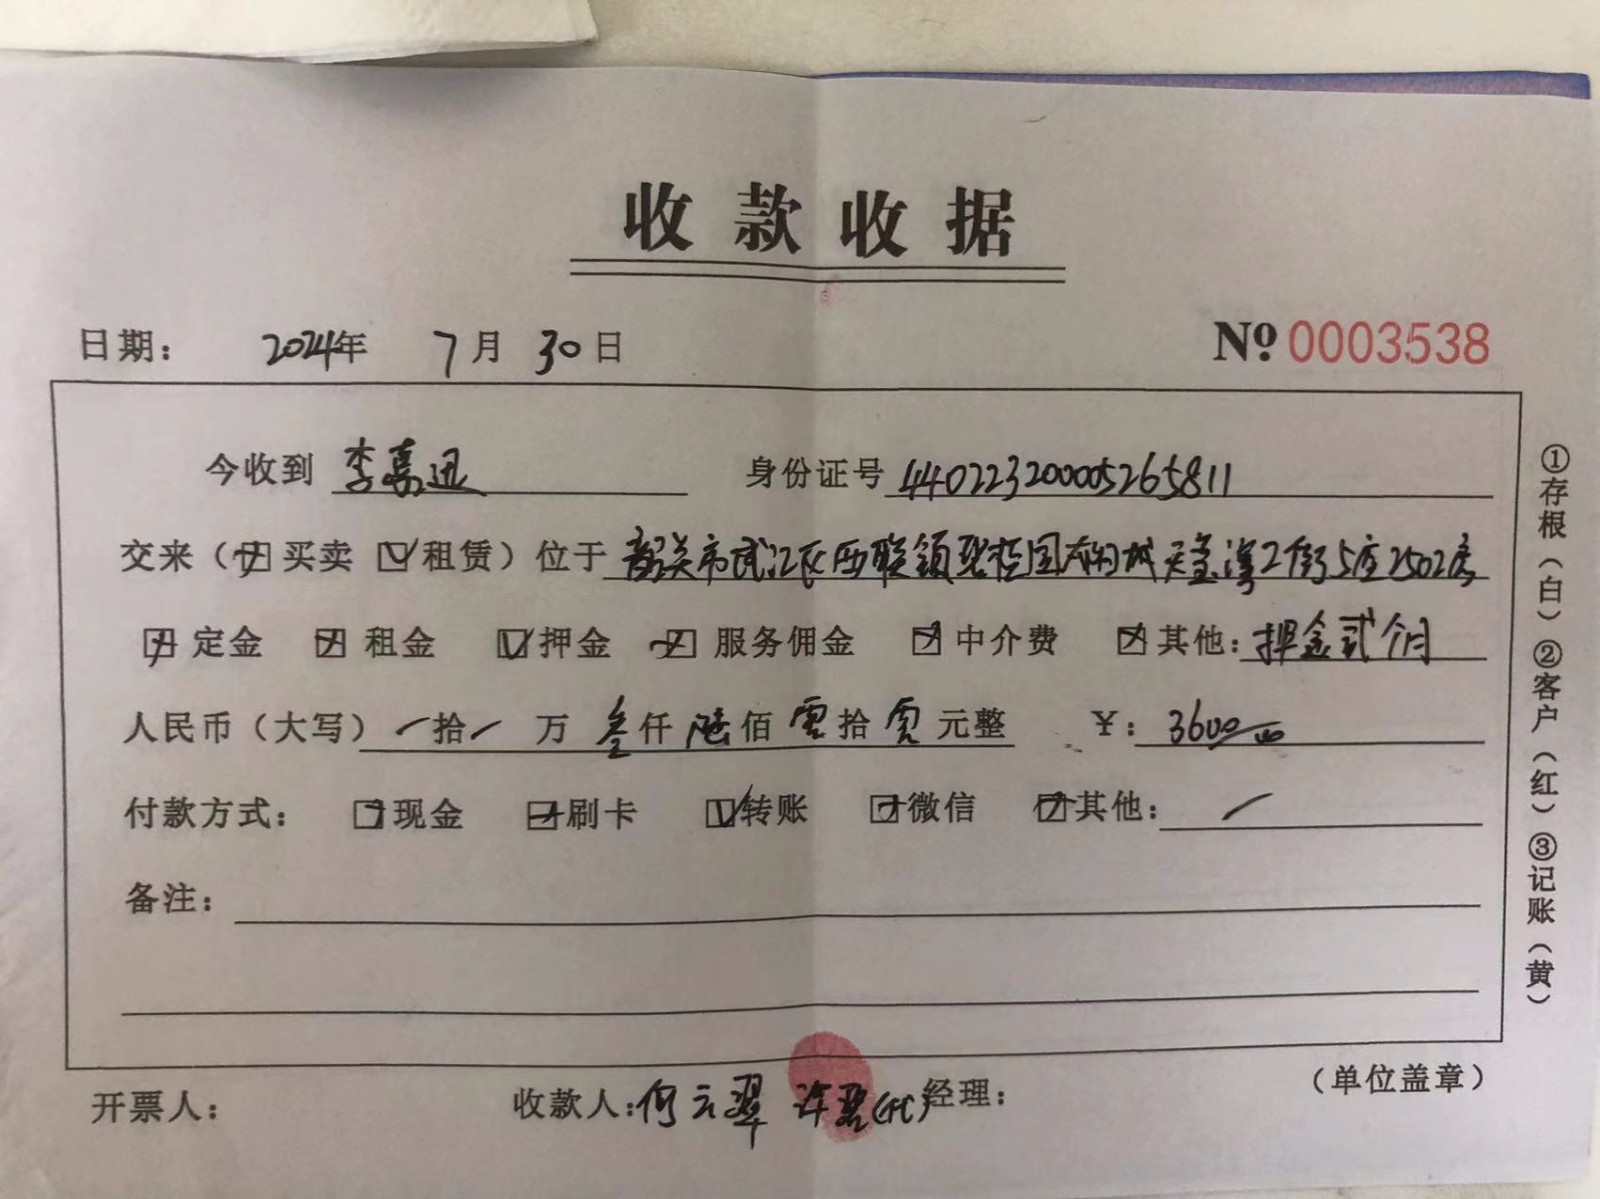 收款收据
日期: 2024年 7月 30日 № 0003538
今收到 李嘉迅 身份证号 440223200005265811
交来(买卖 租赁)位于 韶关市武江区西联镇碧桂园太阳城天玺湾2街5座2502房
定金 租金 押金 服务佣金 中介费 其他: 押金贰个月
人民币(大写) / 拾 / 万 叁仟陆佰零拾零元整 ¥: 3600
付款方式: 现金 刷卡 转账 微信 其他: /
备注:
开票人: 收款人: 何云翠 许碧(代) 经理: (单位盖章)
①存根(白)②客户(红)③记账(黄)